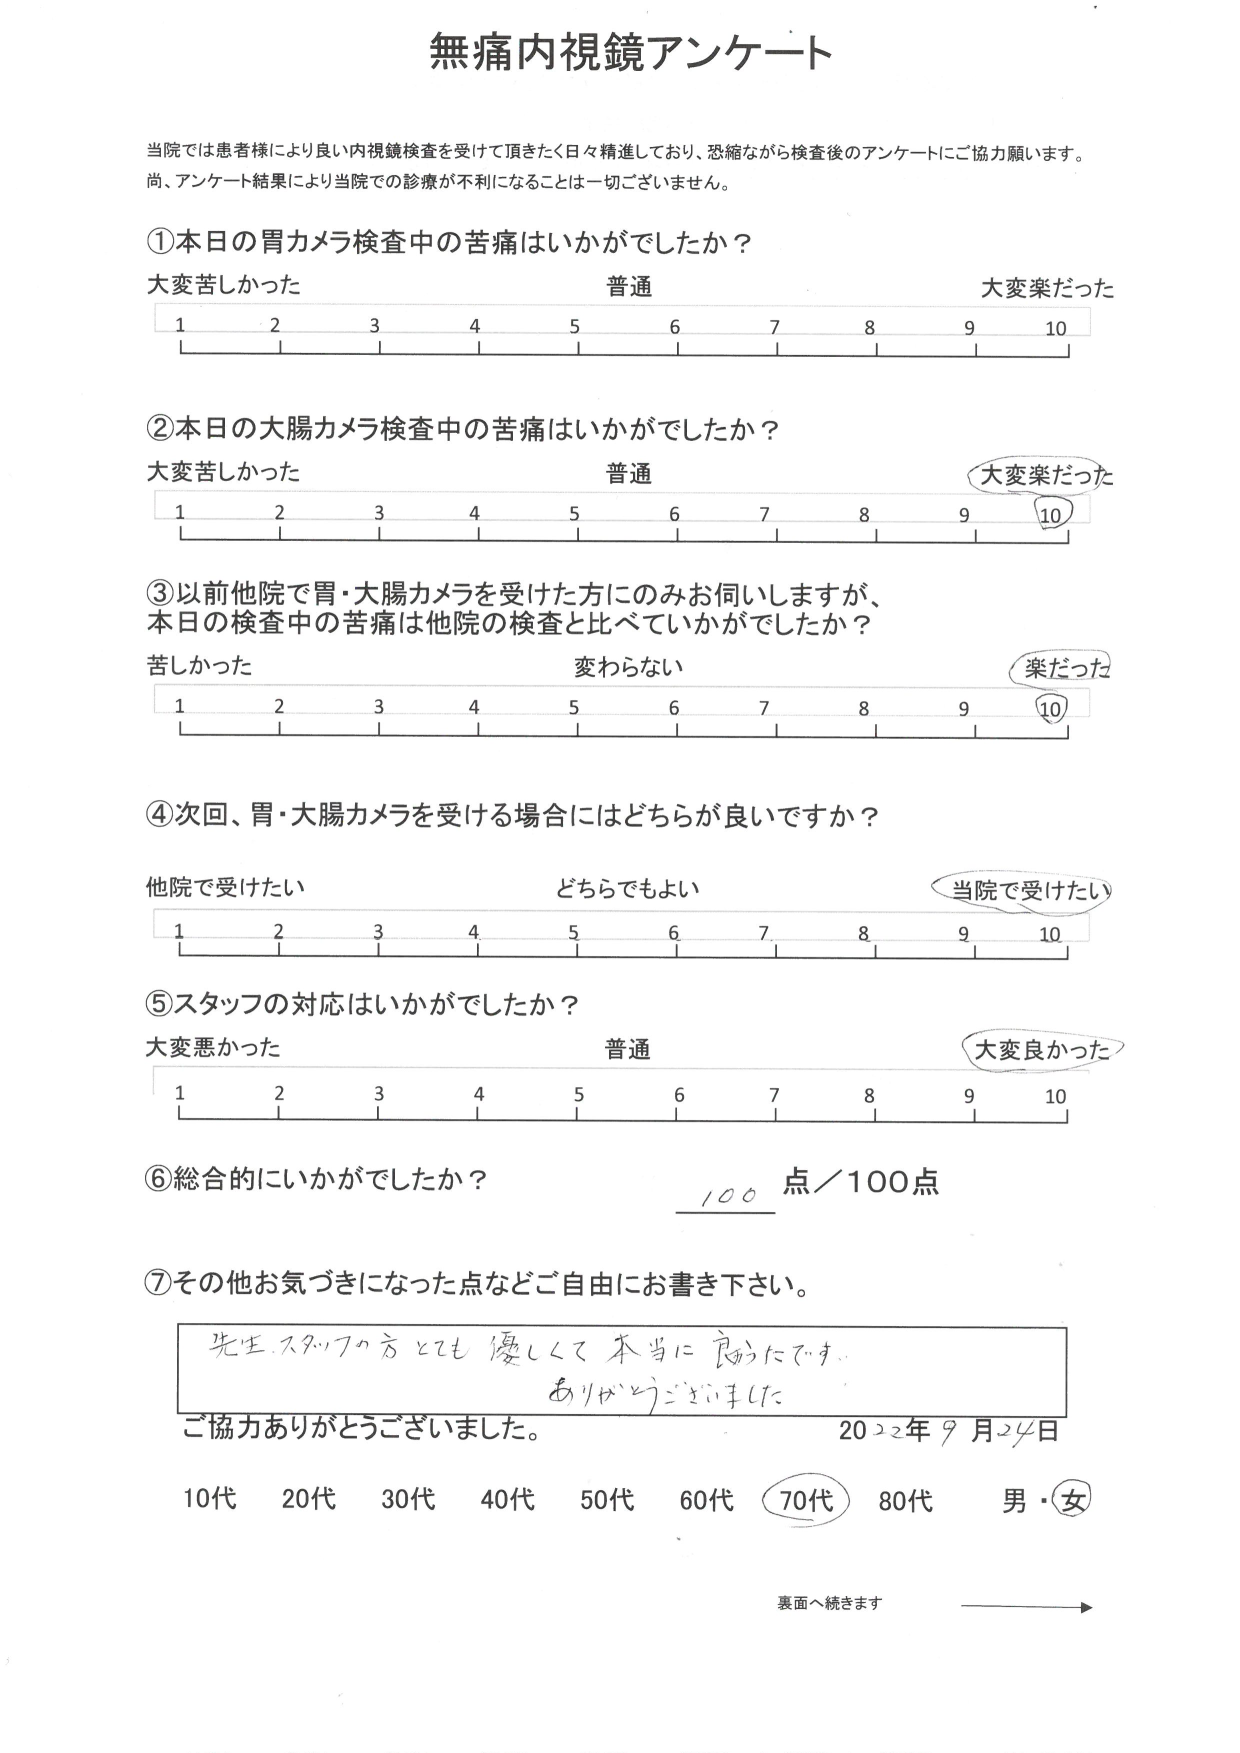 無痛内視鏡アンケート
当院では患者様により良い内視鏡検査を受けて頂きたく日々精進しており、恐縮ながら検査後のアンケートにご協力願います。
尚、アンケート結果により当院での診療が不利になることは一切ございません。
①本日の胃カメラ検査中の苦痛はいかがでしたか？
大変苦しかった 普通 大変楽だった
1 2 3 4 5 6 7 8 9 10
②本日の大腸カメラ検査中の苦痛はいかがでしたか？
大変苦しかった 普通 大変楽だった
1 2 3 4 5 6 7 8 9 10
③以前他院で胃・大腸カメラを受けた方にのみお伺いしますが、
本日の検査中の苦痛は他院の検査と比べていかがでしたか？
苦しかった 変わらない 楽だった
1 2 3 4 5 6 7 8 9 10
④次回、胃・大腸カメラを受ける場合にはどちらが良いですか？
他院で受けたい どちらでもよい 当院で受けたい
1 2 3 4 5 6 7 8 9 10
⑤スタッフの対応はいかがでしたか？
大変悪かった 普通 大変良かった
1 2 3 4 5 6 7 8 9 10
⑥総合的にいかがでしたか？ 100 点／100点
⑦その他お気づきになった点などご自由にお書き下さい。
先生、スタッフの方とても優しくて本当に良かったです。
ありがとうございました
ご協力ありがとうございました。 2022年9月24日
10代 20代 30代 40代 50代 60代 70代 80代 男・女
裏面へ続きます